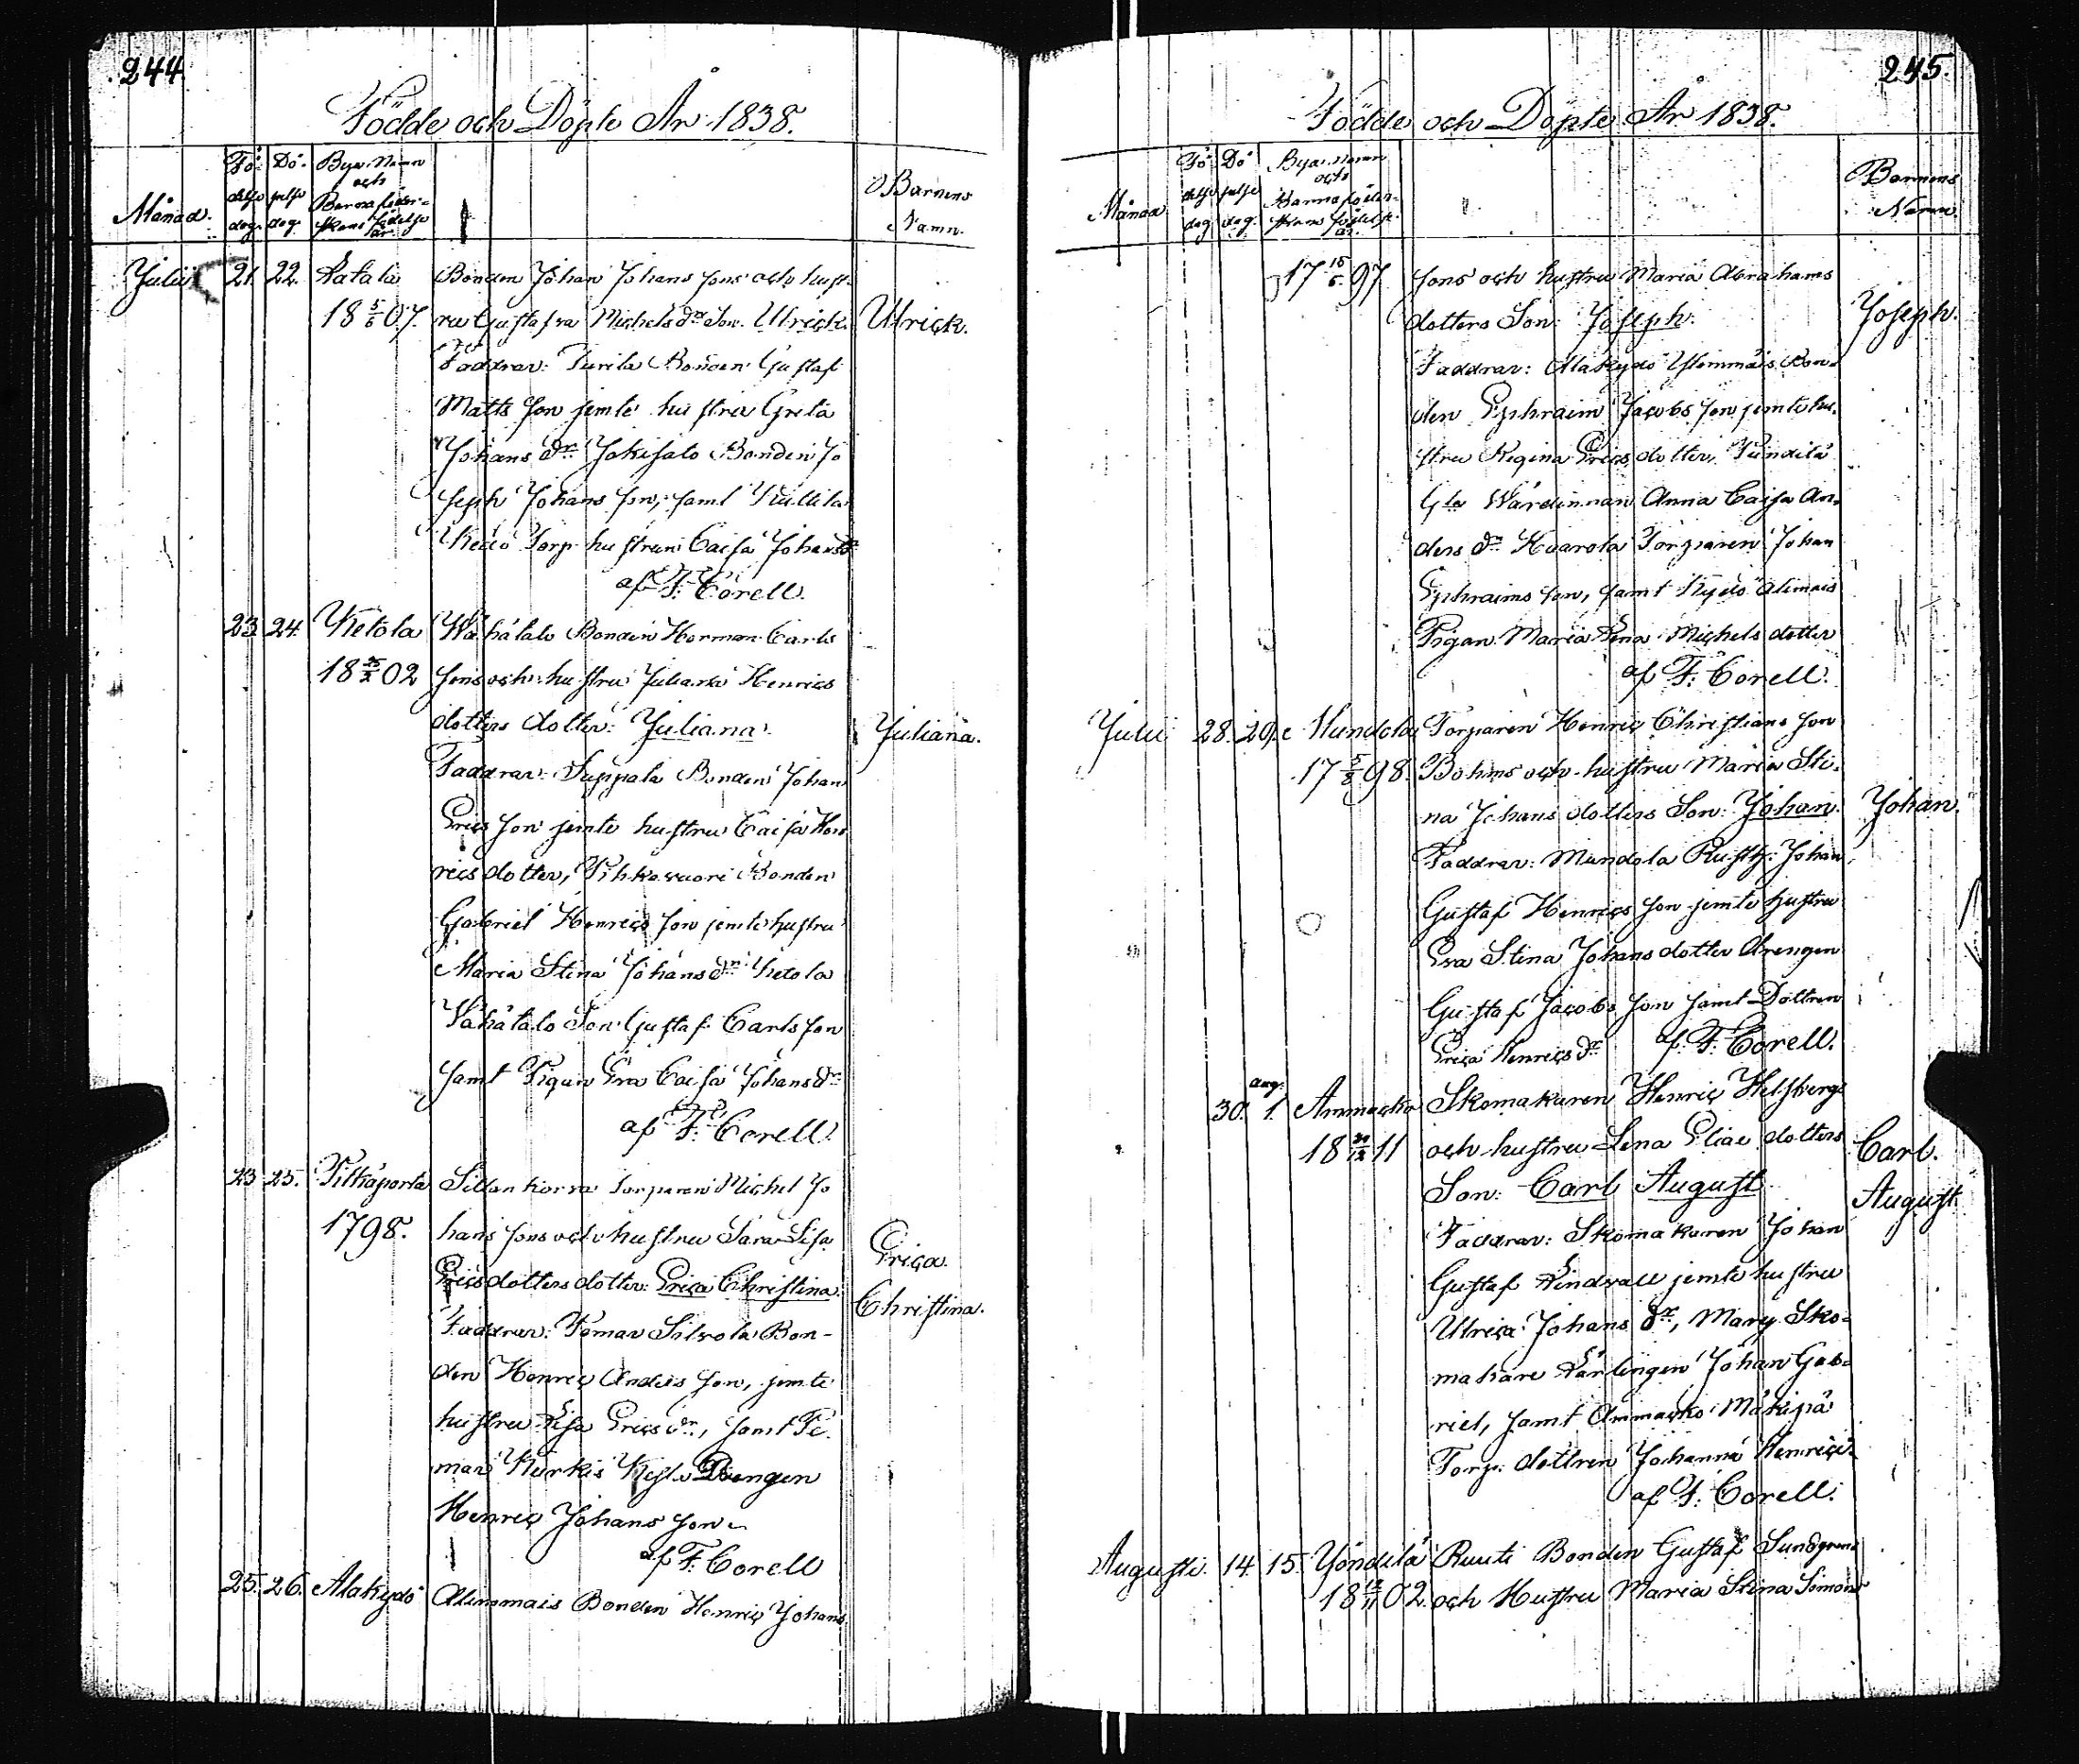 244.
Födde och Döpte År 1838.
Månad.
Fö-
delse
dag.
Dö-
pelse
dag
Byar. Namn
och
Barna föder-
skans födelse
år.
Barnens
Namn.
Julii 21. 22. Latala Bonden Johan Johans sons och hust-
18 5/6 07. ru Gustafva Michels dr Son. Ulrick. Ulrick.
Faddrar: Turila Bonden Gustaf
Matts son jemte hustru Greta
Johans dr Jokisalo Bonden Jo
seph Johans son, samt
Torp. hustrun Caisa Johansdr
af F. Corell.
23. 24. Ketola Wähätalo Bonden Herman Carls
18 25/2 02 sons och hustru Juliana Henrics
dotters dotter: Juliana. Juliana.
Faddrar: Suppala Bonden Johan
Erics son jemte hustru Caisa Hen
rics dotter, Pihkavuori Bonden
Gabriel Henrics son jemte hustru
Maria Stina Johans dr Ketola
Wähätalo Son Gustaf Carls son
samt Pigan Eva Caisa Johans dr
af F. Corell.
23 25. Pitkäporta Sillankorva Torparen Michel Jo
1798. hans sons och hustru Sara Lisa
Erics dotters dotter: Erica Christina. Erica.
Christina.
Faddrar: Pomar Silvola Bon-
den Henric Anders son, jemte
hustru Lisa Erics dr, samt Po-
mar Kurkis Drengen
Henric Johans son
af F. Corell
25. 26. Alakydö Alimmais Bonden Henric Johans
245.
Födde och Döpte År 1838.
Månad
Fö-
delse
dag
Dö
pelse
dag.
Byar. Namn
och
Barna föder-
skans födelse
år.
Barnens
Namn.
17 15/6 97 sons och hustru Maria Abrahams
dotters Son: Joseph. Joseph.
Faddrar: Alakydö Ylimmäis Bon-
den Ephraim Jacobs son jemte hu-
stru Regina Erics dotter,
Gla Wärdinnan Anna Caisa An-
ders dr Torparen Johan
Ephraims son, samt Kydö alimais
Pigan Maria Lena Michels dotter
af F. Corell.
Julii 28. 29. Mundola Torparen Henric Christians son
17 5/8 98. Böhms och hustru Maria Sti-
na Johans dotters Son: Johan. Johan.
Faddrar: Mundola Rusth: Johan
Gustaf Henrics son jemte hustru
Eva Stina Johans dotter Drengen
Gustaf Jacobs son samt Dottren
Erica Henrics dr af F. Corell.
aug.
30. 1. Ammacko Skomakaren Henric Helsbergs
18 20/12 11 och hustru Lena Eliae dotters Carl.
Son: Carl August August
Faddrar: Skomakaren Johan
Gustaf Lindvall jemte hustru
Ulrica Johans dr, Mary Sko-
makare Lärlingen Johan Gab-
riel, samt Ammacko Mäkipä
Torp. dottren Johanna Henrics
af F. Corell.
Augusti. 14. 15. Yöndilä Ruuti Bonden Gustaf Sundgrens
18 12/11 02. och Hustru Maria Stina Simons